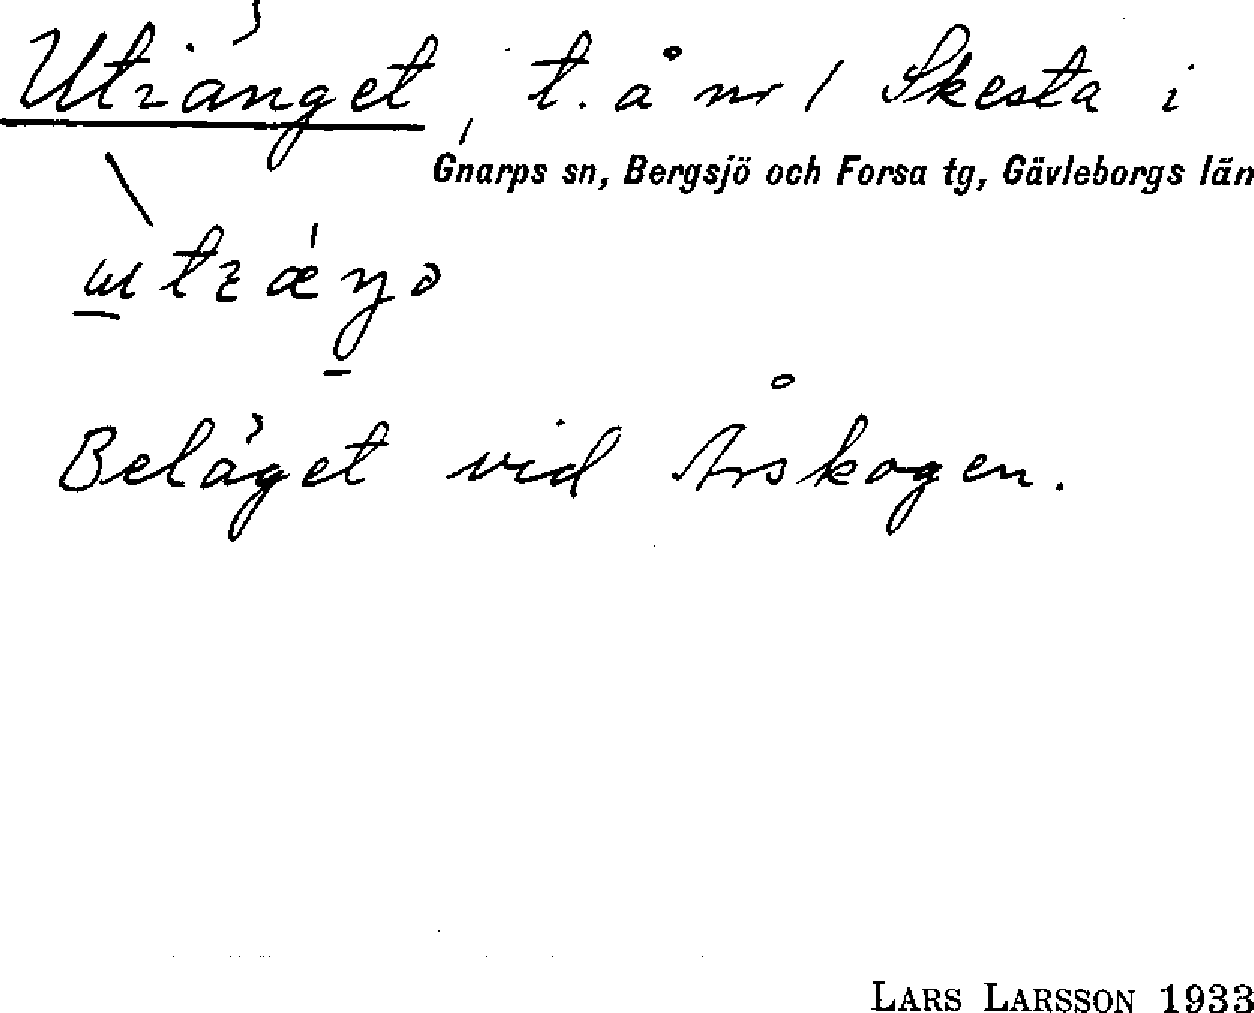 Utränget, t. å nr 1 Skesta i
Gnarps sn, Bergsjö och Forsa tg, Gävleborgs län
Beläget vid Årskogen.
LARS LARSSON 1933